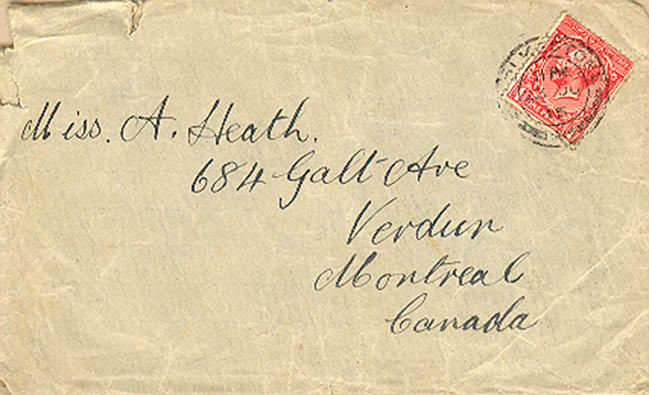 Miss. A. Heath.
684 Galt Ave
Verdun
Montreal
Canada